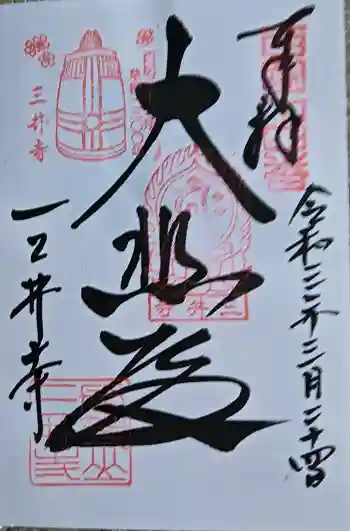 奉拝
令和三年三月二十四日
大悲殿
三井寺
三井寺
三井寺